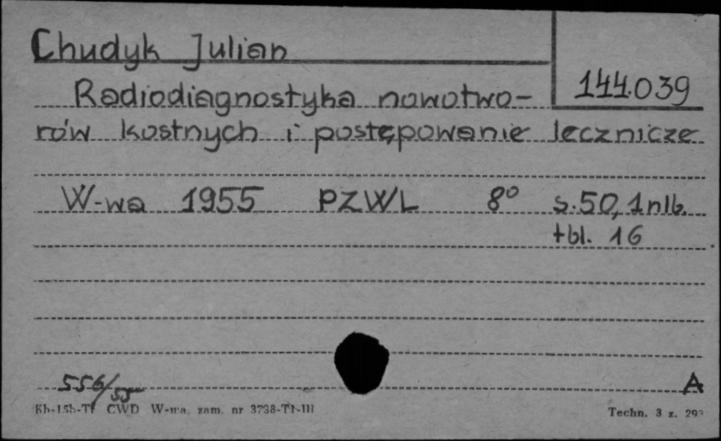 Chudyk Julian
144.039
Radiodiagnostyka nowotwo-
rów kostnych i postępowanie lecznicze
W-wa 1955 PZWL 8° s. 50, 1 nlb.
tbl. 16
556/55
A
CWD W-wa, zam. nr 3738-TI-III
Techn. 3 z.